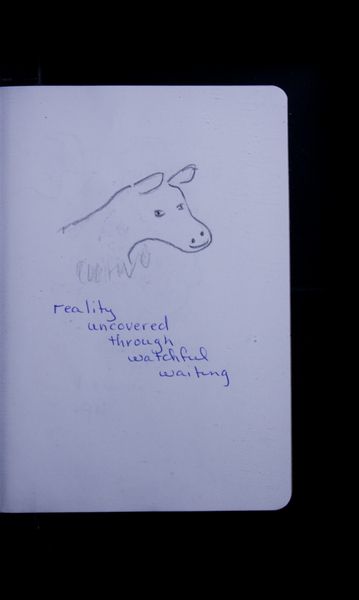 reality
uncovered
through
watchful
waiting